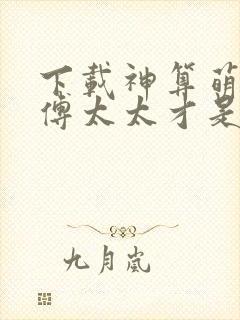 下载神算萌
傅太太才是
九月岚